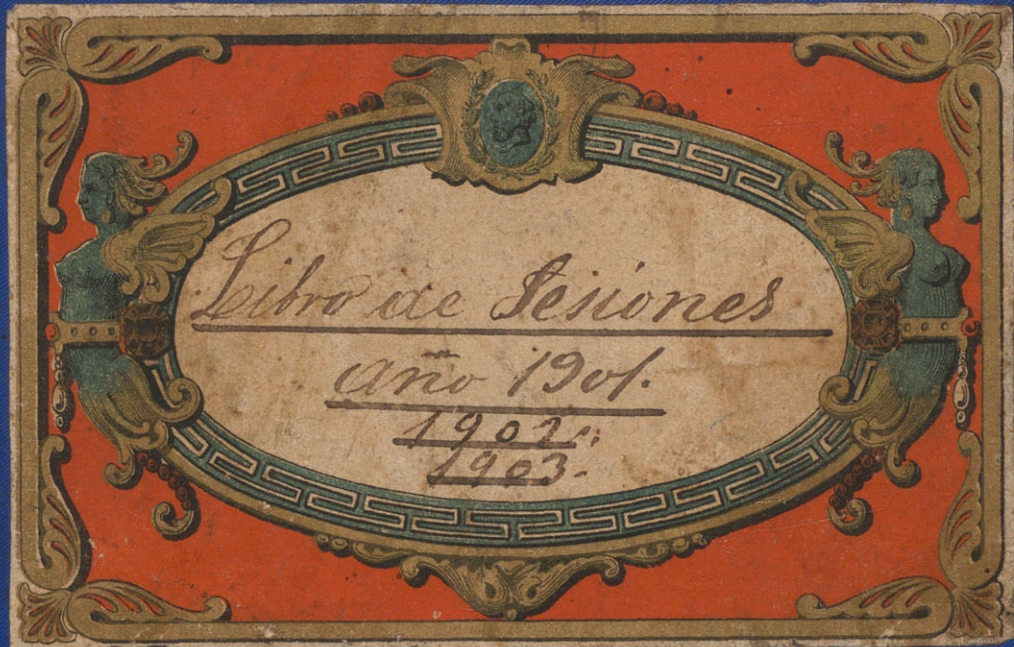 Libro de Sesiones
año 1901.
1902.
1903.